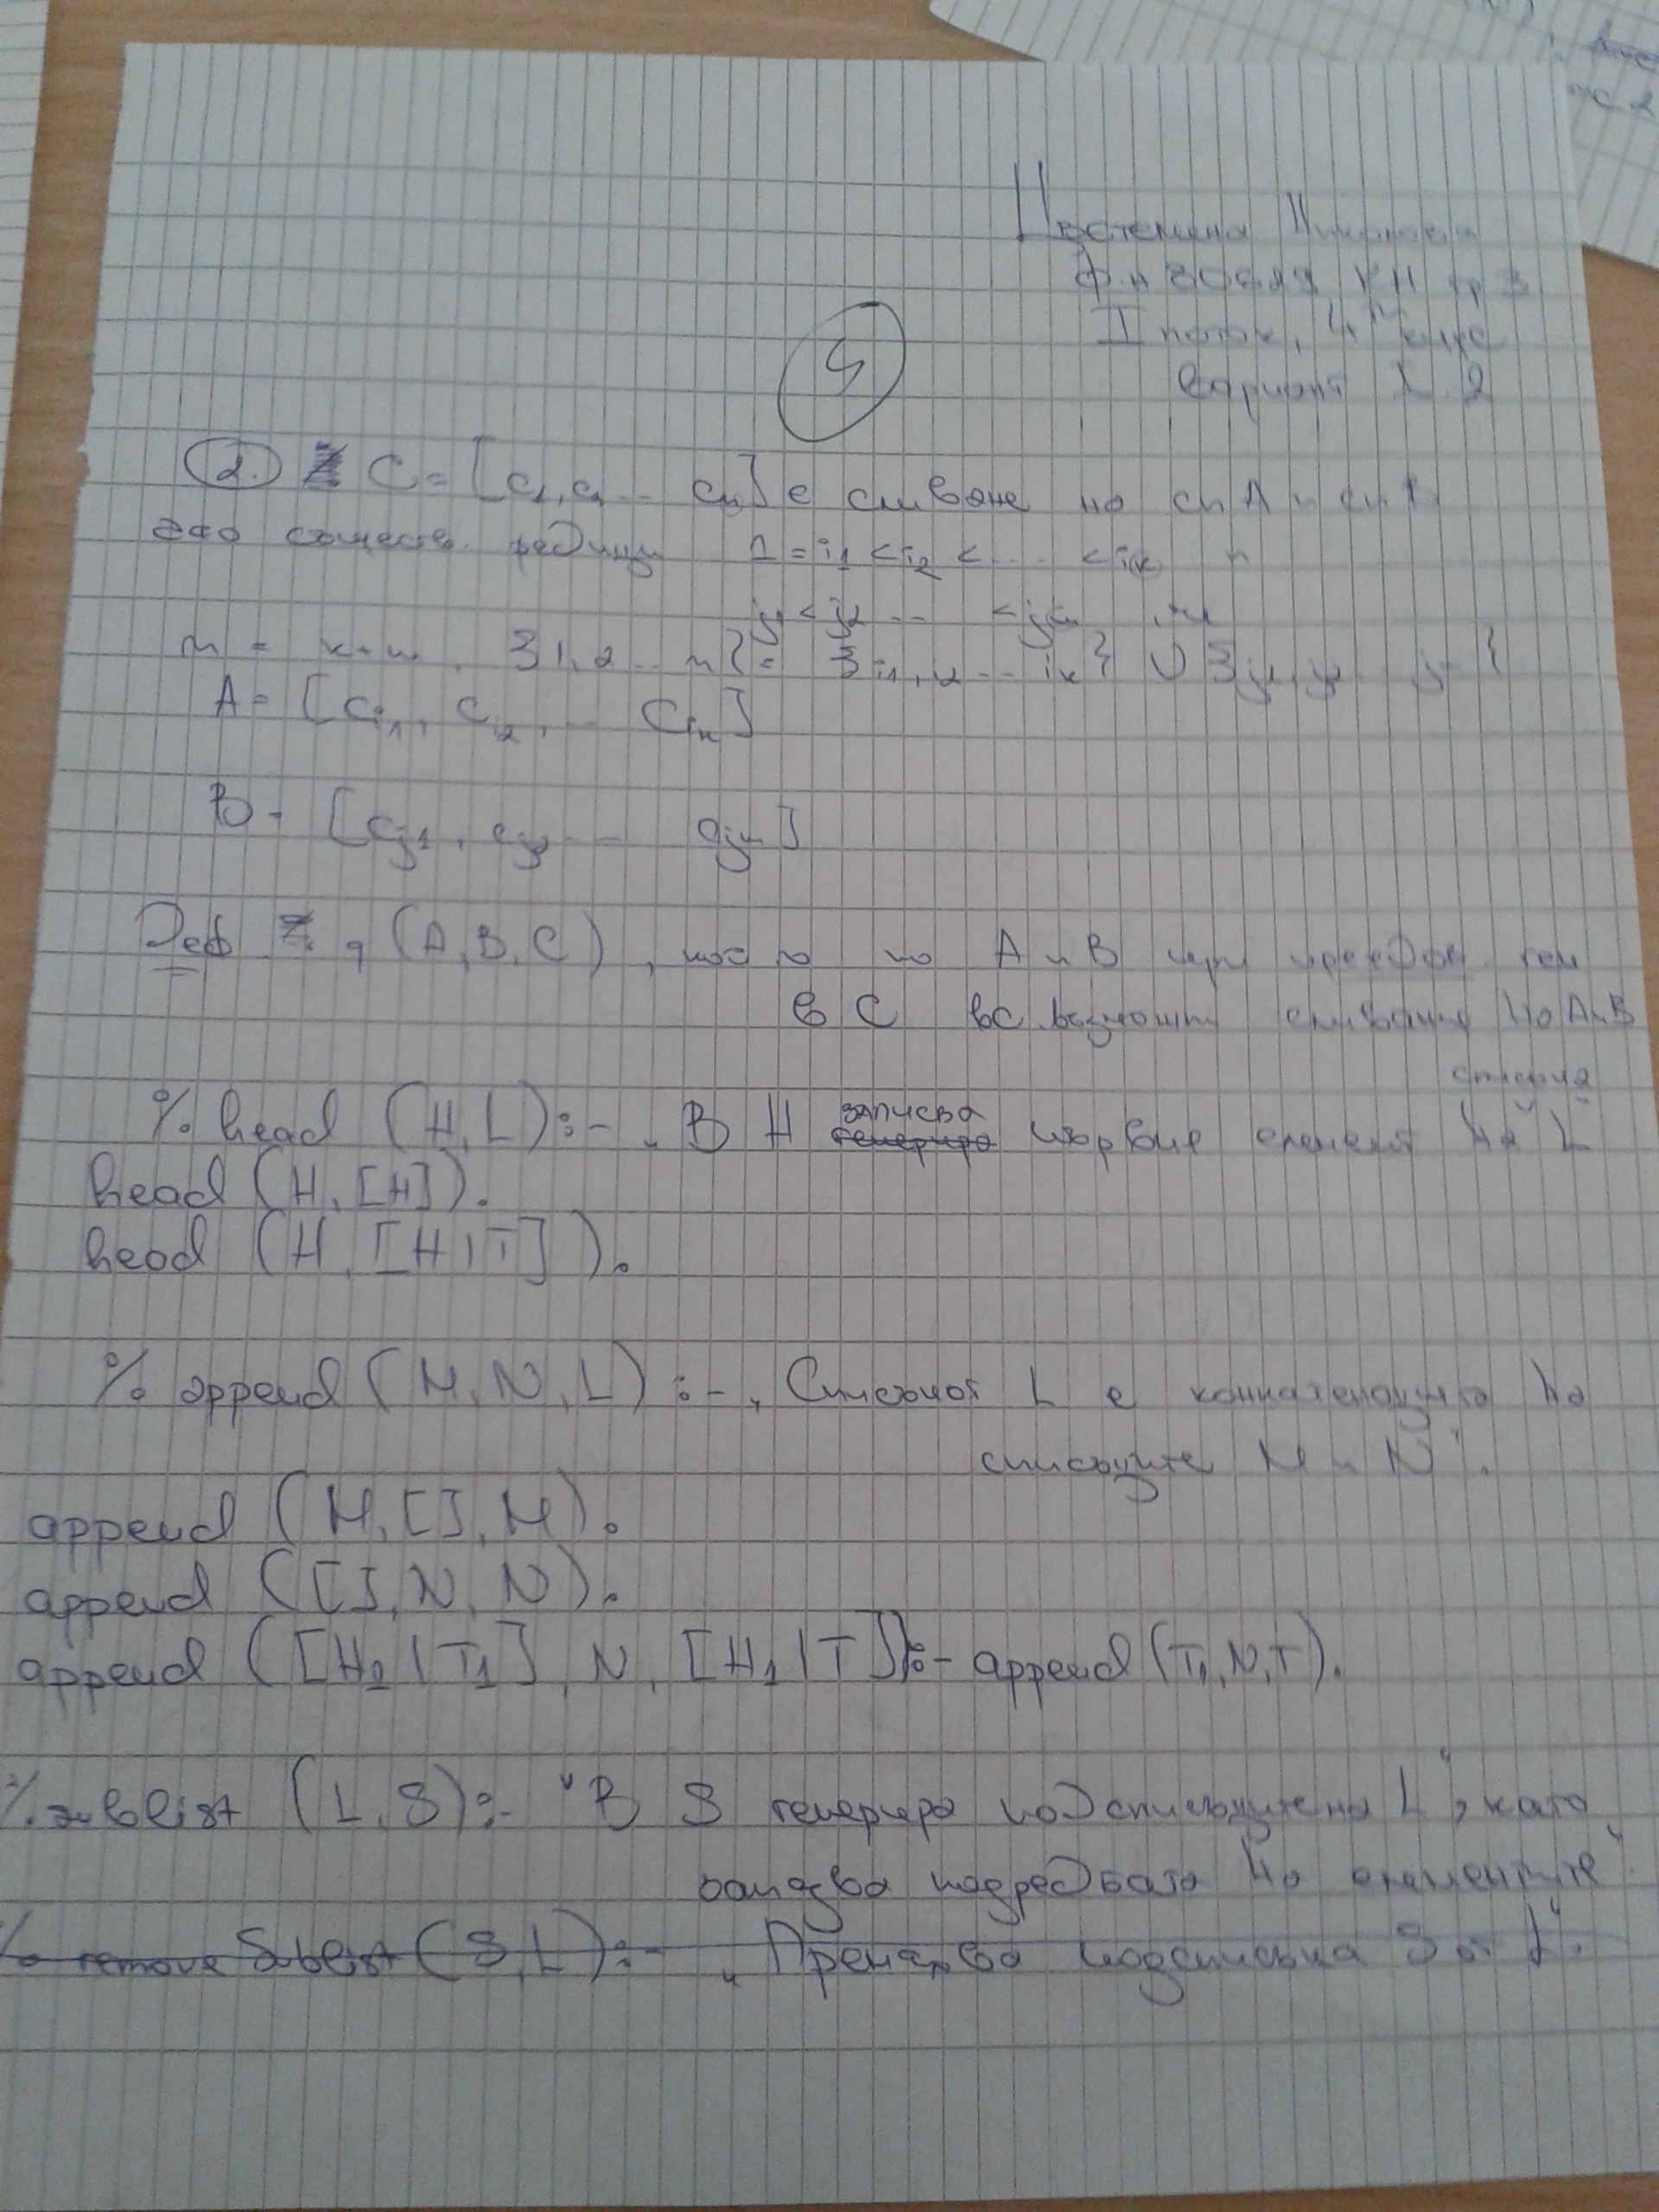 Цветелина Николова
ф.н КН гр 3
II поток, курс
Вариант 2
5
2. C = [c1, c2 ... cn] е сливане на сп A и сп B
ако същест. редици 1 = i1 < i2 < ... < ik и
j1 < j2 ... < jm
n = k+m, {1, 2 .. n} = {i1, i2 ... ik} ∪ {j1, j2 ... jm}
A = [ci1, ci2, ... cik]
B = [cj1, cj2 ... cjm]
Деф q (A, B, C), по A и B при ген
в C вс. възможни сливания на A и B
списъка
% head (H, L) :- „В H записва генерира първия елемент на L"
head (H, [H]).
head (H, [H|T]).
% append (M, N, L) :- „Списъкът L е конкатенацията на
списъците M и N".
append (M, [], M).
append ([], N, N).
append ([H1|T1], N, [H1|T]) :- append (T1, N, T).
% sublist (L, S) :- "В S генерира подсписъците на L", като
запазва подредбата на елементите"
% remove Sublist (S, L) :- „Премахва подсписъка S от L".